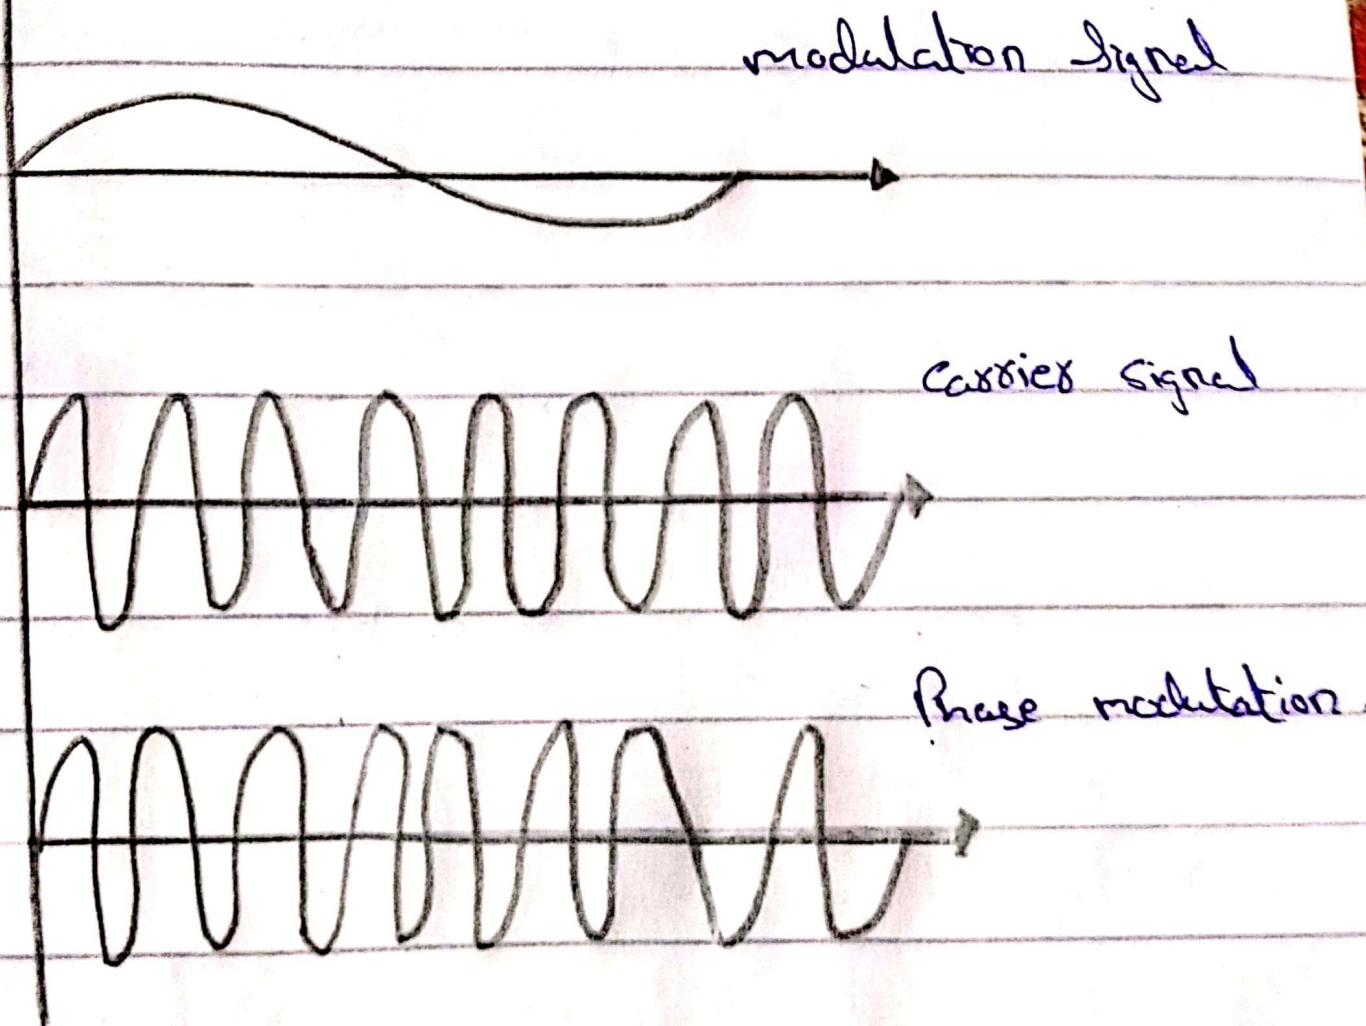 modulation signal
carrier signal
Phase modulation